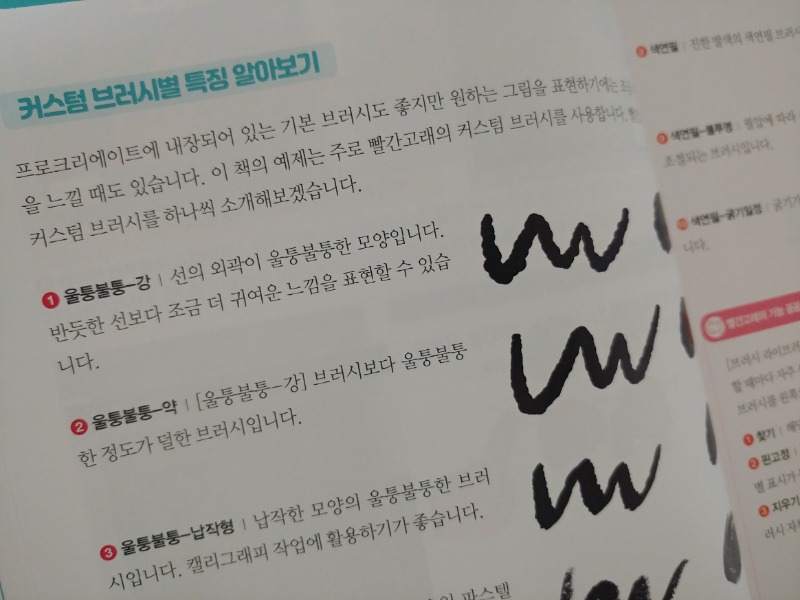 커스텀 브러시별 특징 알아보기
프로크리에이트에 내장되어 있는 기본 브러시도 좋지만 원하는 그림을 표현하기에는
을 느낄 때도 있습니다. 이 책의 예제는 주로 빨간고래의 커스텀 브러시를 사용합니다.
커스텀 브러시를 하나씩 소개해보겠습니다.
1 울퉁불퉁-강 | 선의 외곽이 울퉁불퉁한 모양입니다.
반듯한 선보다 조금 더 귀여운 느낌을 표현할 수 있습
니다.
2 울퉁불퉁-약 | [울퉁불퉁-강] 브러시보다 울퉁불퉁
한 정도가 덜한 브러시입니다.
3 울퉁불퉁-납작형 | 납작한 모양의 울퉁불퉁한 브러
시입니다. 캘리그래피 작업에 활용하기가 좋습니다.
파스텔
색연필 | 진한 발색의 색연필 브러시
색연필-불투명 | 필압에 따라
조절되는 브러시입니다.
색연필-굵기일정 | 굵기가
니다.
빨간고래의 기능 꼼꼼
[브러시 라이브러
할 때마다 자주
브러시를 왼쪽
1 찾기 |
2 핀고정 |
별 표시가
3 지우기
러시 자